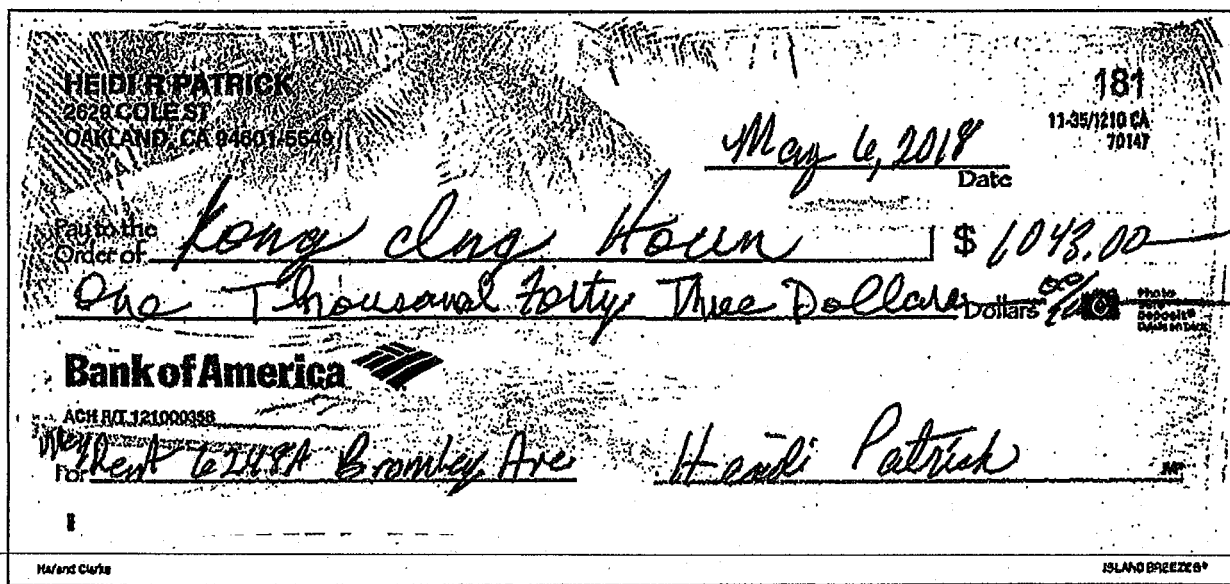 HEIDI R PATRICK
2629 COLE ST
OAKLAND, CA 94601-5649
181
11-35/1210 CA
70147
May 6, 2018
Date
Pay to the
Order of Kong Ing Houn $ 1043.00
One Thousand Forty Three Dollars Dollars
Photo
Deposit®
Bank of America
ACH R/T 121000358
May
For Rent 6248A Bromley Ave Heidi Patrick MP
Harland Clarke ISLAND BREEZES®